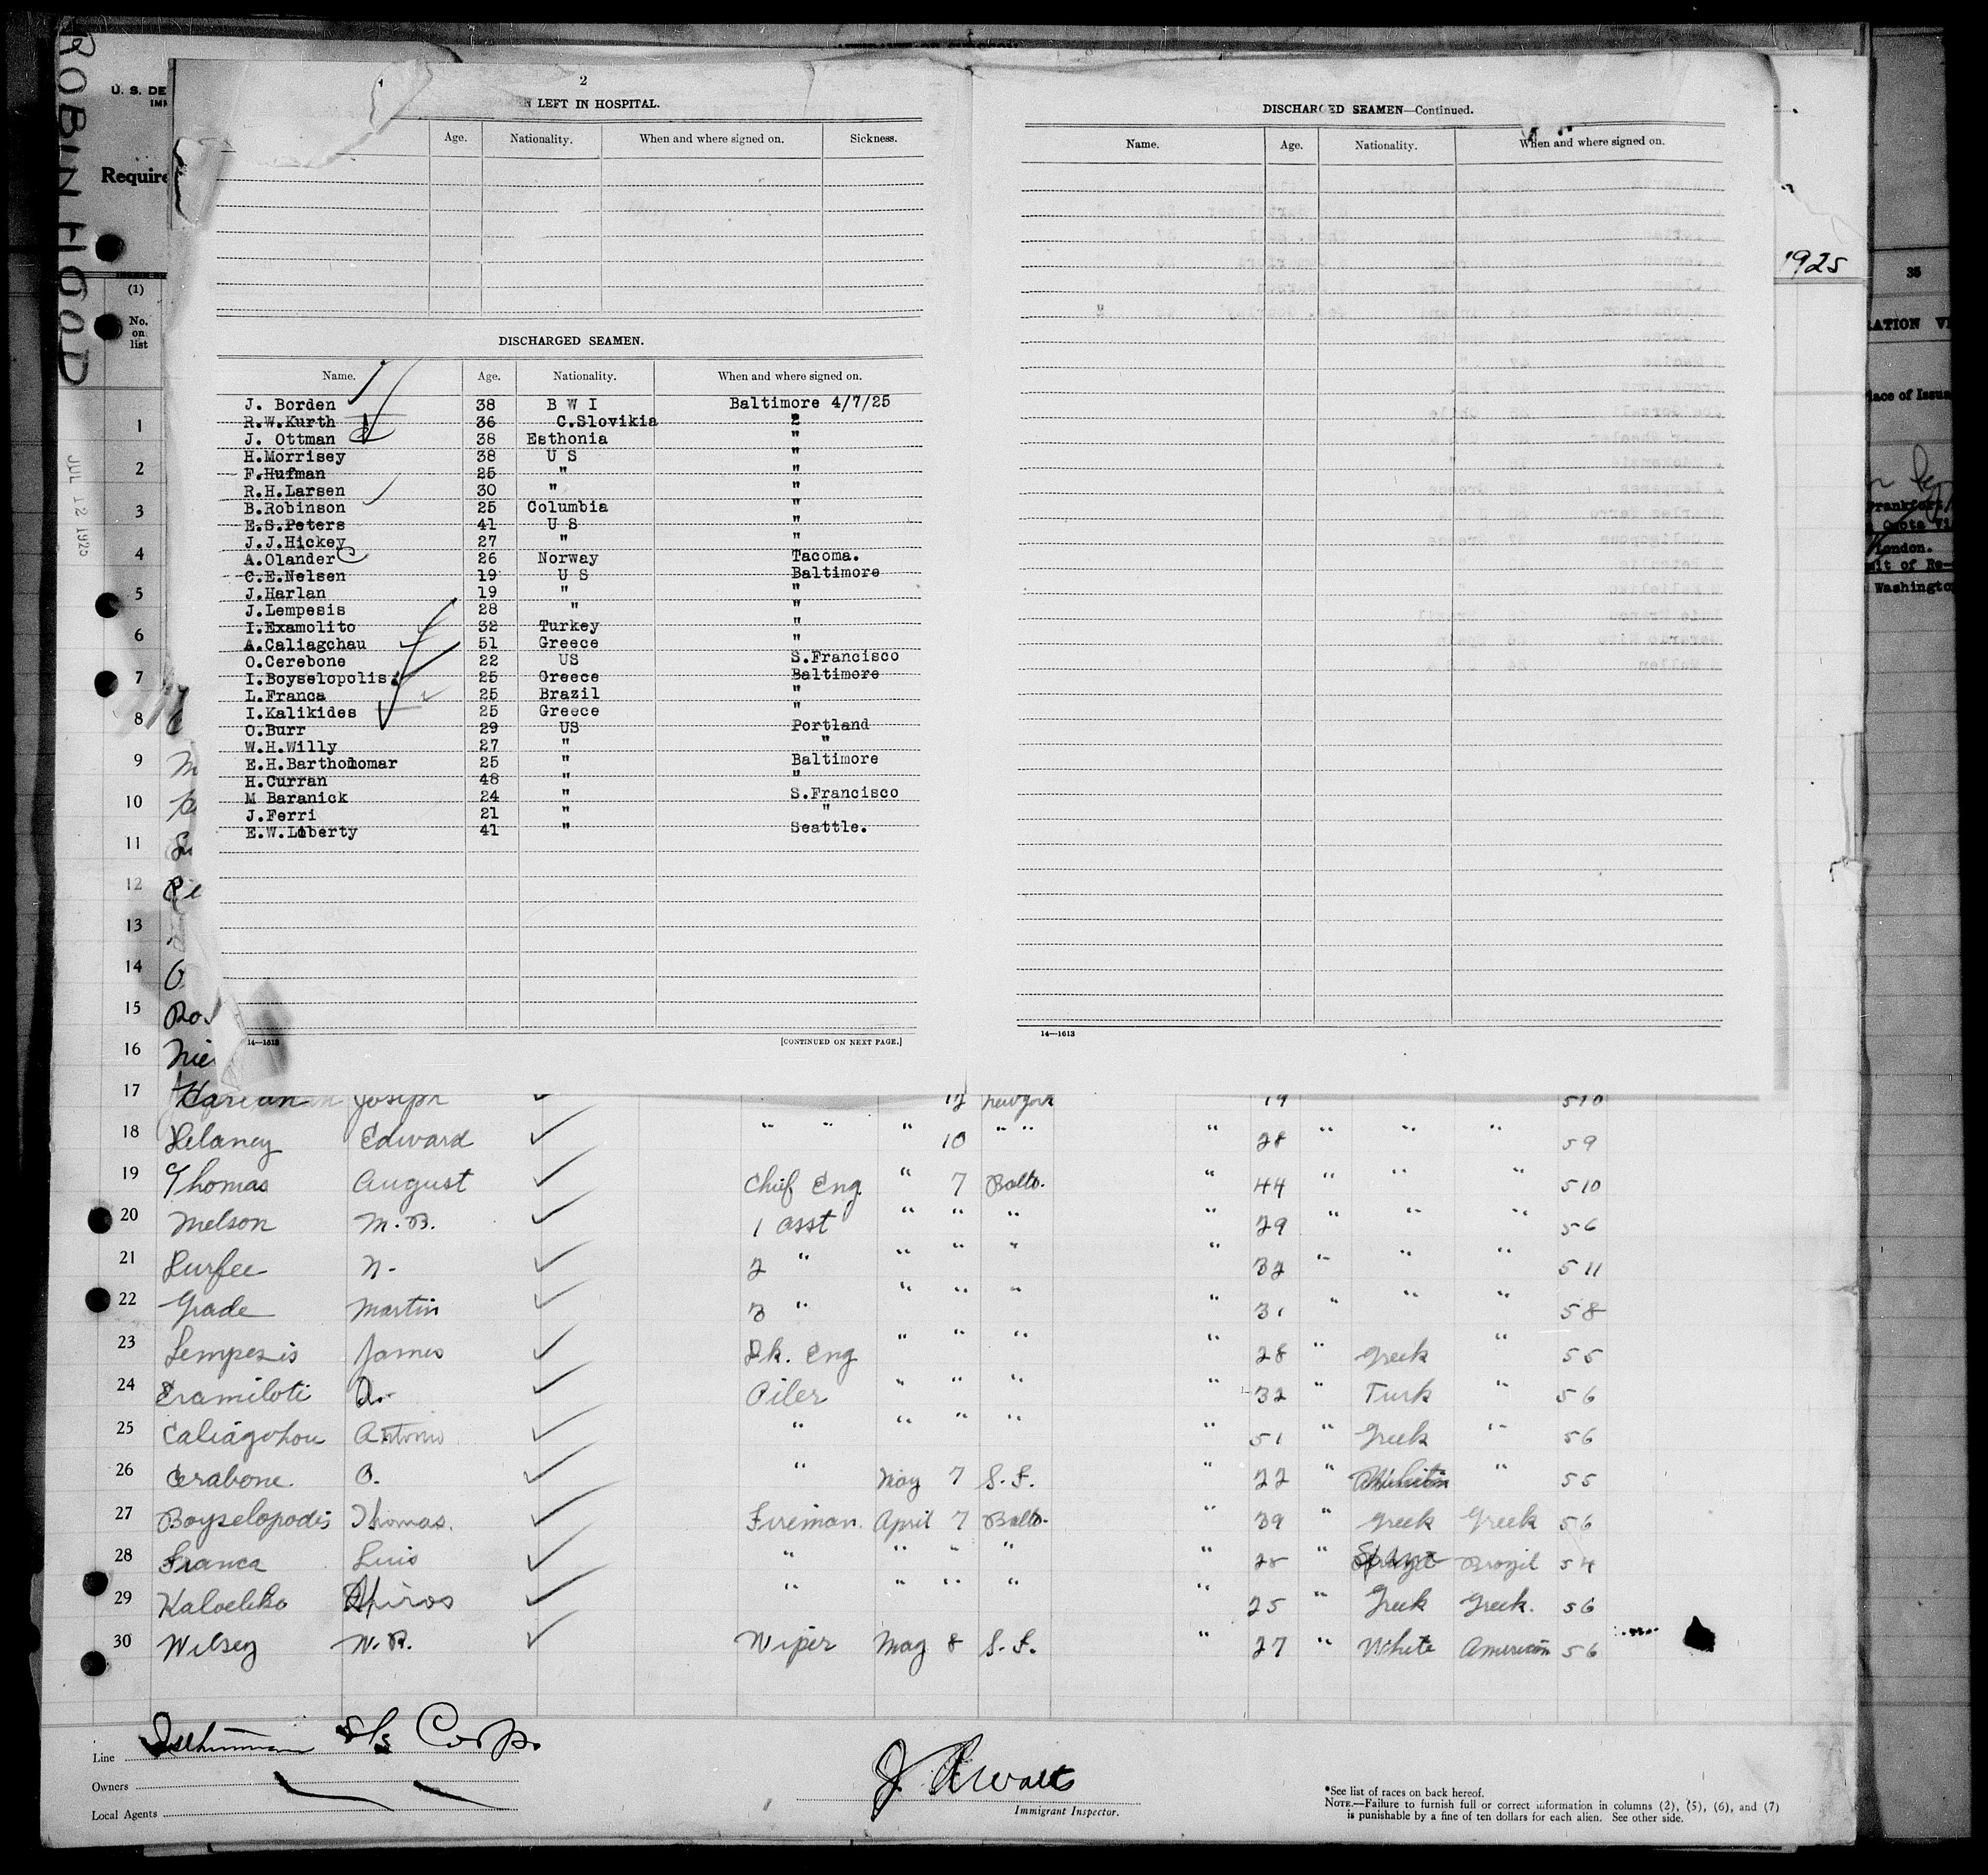 ROBIN HOOD
U. S. DE
IMM
Require
(1)
No.
on
list
JUL 12 1925
2
N LEFT IN HOSPITAL.
Age. Nationality. When and where signed on. Sickness.
DISCHARGED SEAMEN.
Name. Age. Nationality. When and where signed on.
J. Borden 38 B W I Baltimore 4/7/25
R.W.Kurth 36 C.Slovikia "
J. Ottman 38 Esthonia "
H.Morrisey 38 U S "
F.Hufman 25 " "
R.H.Larsen 30 " "
B.Robinson 25 Columbia "
E.S.Peters 41 U S "
J.J.Hickey 27 " "
A.Olander 26 Norway Tacoma.
C.E.Nelsen 19 U S Baltimore
J.Harlan 19 " "
J.Lempesis 28 " "
I.Examolito 32 Turkey "
A.Caliagchau 51 Greece "
O.Cerebone 22 US S.Francisco
I.Boyselopolis. 25 Greece Baltimore
L.Franca 25 Brazil "
I.Kalikides 25 Greece "
O.Burr 29 US Portland
W.H.Willy 27 " "
E.H.Bartholomar 25 " Baltimore
H.Curran 48 " "
M Baranick 24 " S.Francisco
J.Ferri 21 " "
E.W.Liberty 41 " Seattle.
14—1613 [CONTINUED ON NEXT PAGE.]
DISCHARGED SEAMEN—Continued.
Name. Age. Nationality. When and where signed on.
14—1613
1925
35
RATION VI
lace of Issua
Frankfort
London.
mit of Re-
Washington
1
2
3
4
5
6
7
8
9
10
11
12
13
14
15
16
17 Harlan Joseph 12 New York 19 510
18 Delaney Edward " " " 10 " " " 28 " " " 59
19 Thomas August Chief Eng " 7 Balto. " 44 " " " 510
20 Melson M.B. 1 asst " " " " 29 " " " 56
21 Durfee N. 2 " " " " " 32 " " " 511
22 Grade Martin 3 " " " " " 31 " " " 58
23 Lempesis James Dk. Eng " " " " 28 " Greek " 55
24 Eramiloti Oiler " " " " 32 " Turk " 56
25 Caliagohou Antonio " " " " " 51 " Greek " 56
26 Cerabone. O. " May 7 S.F. " 22 " " 55
27 Boyselopodis Thomas. Fireman. April 7 Balto. " 39 " Greek Greek 56
28 Franca Luis " " " " " 25 " Brazil 54
29 Kaloeliko Spiros " " " " " 25 " Greek Greek. 56
30 Wilsey W.R. Wiper May 8 S.F. " 27 " White American 56
Line Isthmian S/S Corp.
Owners
Local Agents
Immigrant Inspector.
*See list of races on back hereof.
NOTE.—Failure to furnish full or correct information in columns (2), (5), (6), and (7)
is punishable by a fine of ten dollars for each alien. See other side.